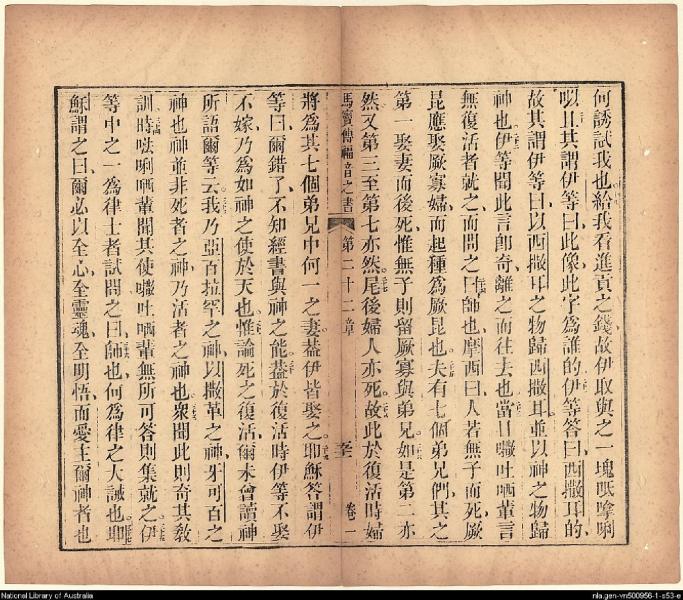 何誘試我也給我看進貢之錢故伊取與之一塊呧嗱唎
㕸且其謂伊等曰此像此字為誰的伊等答曰西撒耳的
故其謂伊等曰以西撒耳之物歸西撒耳並以神之物歸
神也伊等聞此言即奇離之而往去也當日𠿕吐哂輩言
無復活者就之而問之曰師也摩西曰人若無子而死厥
昆應娶厥寡婦而起種為厥昆也夫有七個弟兄們其之
第一娶妻而後死惟無子則留厥寡與弟兄如是第二亦
然又第三至第七亦然尾後婦人亦死故此於復活時婦
馬竇傳福音之書 第二十二章 卷一
將為其七個弟兄中何一之妻蓋伊皆娶之耶穌答謂伊
等曰爾錯了不知經書與神之能蓋於復活時伊等不娶
不嫁乃為如神之使於天也惟論死之復活爾未曾讀神
所語爾等云我乃亞百拉罕之神以撒革之神牙可百之
神也神並非死者之神乃活者之神也眾聞此則奇其教
訓時𠵽唎哂輩聞其使𠿕吐哂輩無所可答則集就之伊
等中之一為律士者試問之曰師也何為律之大誡也耶
穌謂之曰爾必以全心全靈魂全明悟而愛主爾神者也
National Library of Australia
nla.gen-vn500956-1-s53-e